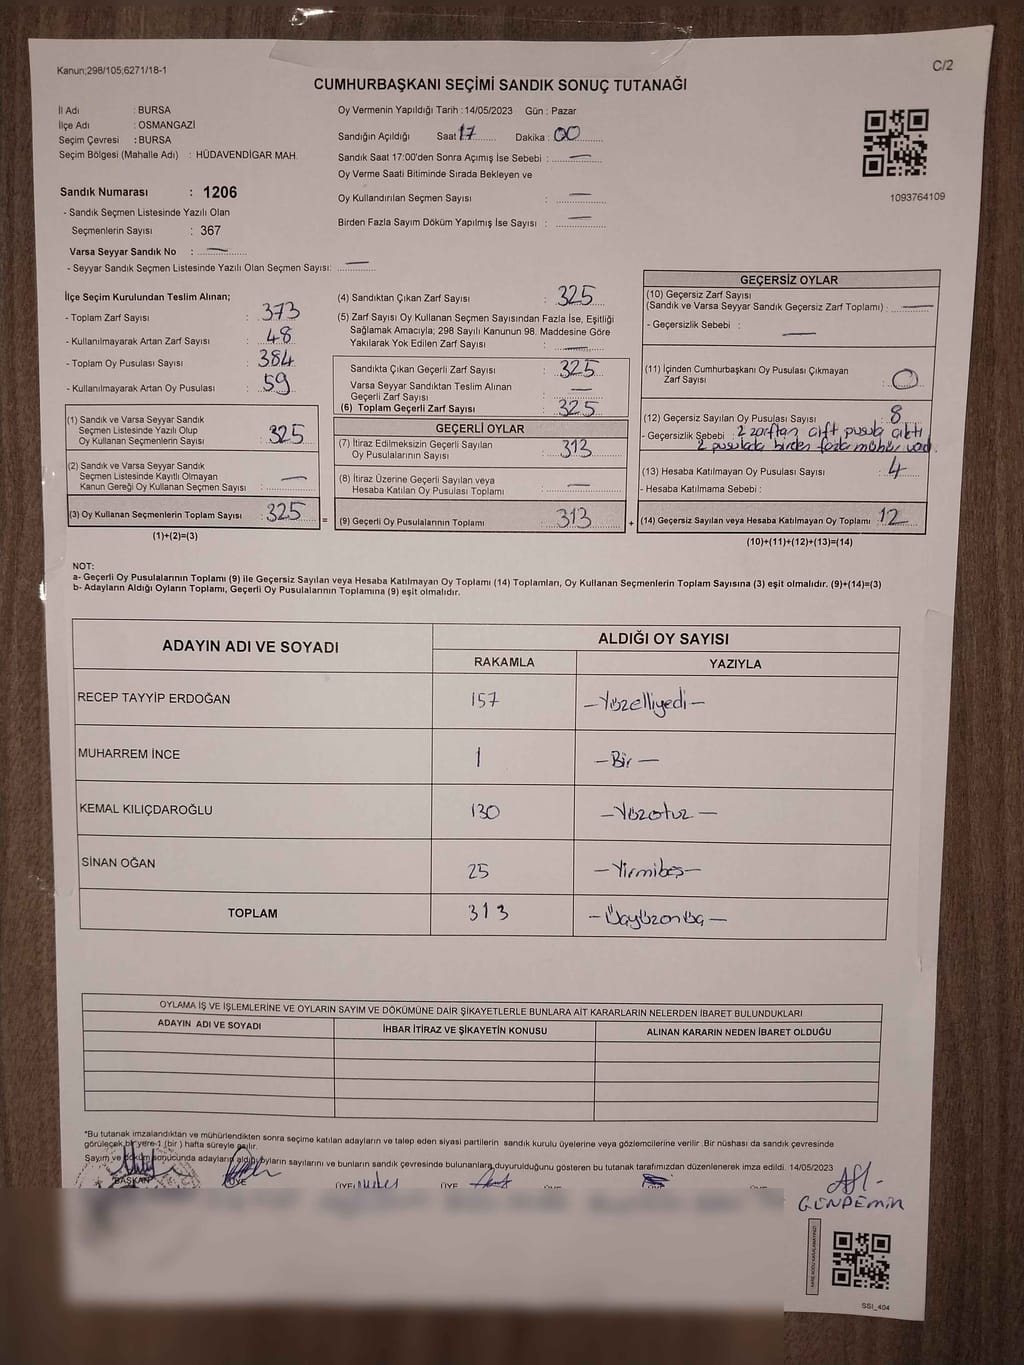 Kanun;298/105;6271/18-1
C/2
CUMHURBAŞKANI SEÇİMİ SANDIK SONUÇ TUTANAĞI
İl Adı : BURSA
İlçe Adı : OSMANGAZİ
Seçim Çevresi : BURSA
Seçim Bölgesi (Mahalle Adı) : HÜDAVENDİGAR MAH.
Oy Vermenin Yapıldığı Tarih :14/05/2023 Gün : Pazar
Sandığın Açıldığı Saat 17 Dakika : 00
Sandık Saat 17:00'den Sonra Açımış İse Sebebi : —
Oy Verme Saati Bitiminde Sırada Bekleyen ve
Oy Kullandırılan Seçmen Sayısı : —
Birden Fazla Sayım Döküm Yapılmış İse Sayısı : —
1093764109
Sandık Numarası : 1206
- Sandık Seçmen Listesinde Yazılı Olan
Seçmenlerin Sayısı : 367
Varsa Seyyar Sandık No : —
- Seyyar Sandık Seçmen Listesinde Yazılı Olan Seçmen Sayısı: —
İlçe Seçim Kurulundan Teslim Alınan;
- Toplam Zarf Sayısı : 373
- Kullanılmayarak Artan Zarf Sayısı : 48
- Toplam Oy Pusulası Sayısı : 384
- Kullanılmayarak Artan Oy Pusulası : 59
(1) Sandık ve Varsa Seyyar Sandık
Seçmen Listesinde Yazılı Olup
Oy Kullanan Seçmenlerin Sayısı : 325
(2) Sandık ve Varsa Seyyar Sandık
Seçmen Listesinde Kayıtlı Olmayan
Kanun Gereği Oy Kullanan Seçmen Sayısı : —
(3) Oy Kullanan Seçmenlerin Toplam Sayısı : 325
(1)+(2)=(3)
(4) Sandıktan Çıkan Zarf Sayısı : 325
(5) Zarf Sayısı Oy Kullanan Seçmen Sayısından Fazla İse, Eşitliği
Sağlamak Amacıyla; 298 Sayılı Kanunun 98. Maddesine Göre
Yakılarak Yok Edilen Zarf Sayısı : —
Sandıkta Çıkan Geçerli Zarf Sayısı : 325
Varsa Seyyar Sandıktan Teslim Alınan
Geçerli Zarf Sayısı : —
(6) Toplam Geçerli Zarf Sayısı : 325
GEÇERLİ OYLAR
(7) İtiraz Edilmeksizin Geçerli Sayılan
Oy Pusulalarının Sayısı : 313
(8) İtiraz Üzerine Geçerli Sayılan veya
Hesaba Katılan Oy Pusulası Toplamı : —
= (9) Geçerli Oy Pusulalarının Toplamı : 313
GEÇERSİZ OYLAR
(10) Geçersiz Zarf Sayısı
(Sandık ve Varsa Seyyar Sandık Geçersiz Zarf Toplamı) : —
- Geçersizlik Sebebi : —
(11) İçinden Cumhurbaşkanı Oy Pusulası Çıkmayan
Zarf Sayısı : 0
(12) Geçersiz Sayılan Oy Pusulası Sayısı : 8
- Geçersizlik Sebebi : 2 zarftan çift pusula çıktı
2 pusulada birden fazla mühür var.
(13) Hesaba Katılmayan Oy Pusulası Sayısı : 4
- Hesaba Katılmama Sebebi :
+ (14) Geçersiz Sayılan veya Hesaba Katılmayan Oy Toplamı : 12
(10)+(11)+(12)+(13)=(14)
NOT:
a- Geçerli Oy Pusulalarının Toplamı (9) ile Geçersiz Sayılan veya Hesaba Katılmayan Oy Toplamı (14) Toplamları, Oy Kullanan Seçmenlerin Toplam Sayısına (3) eşit olmalıdır. (9)+(14)=(3)
b- Adayların Aldığı Oyların Toplamı, Geçerli Oy Pusulalarının Toplamına (9) eşit olmalıdır.
ADAYIN ADI VE SOYADI ALDIĞI OY SAYISI
RAKAMLA YAZIYLA
RECEP TAYYİP ERDOĞAN 157 —Yüzelliyedi—
MUHARREM İNCE 1 —Bir—
KEMAL KILIÇDAROĞLU 130 —Yüzotuz—
SİNAN OĞAN 25 —Yirmibeş—
TOPLAM 313 —Üçyüzonüç—
OYLAMA İŞ VE İŞLEMLERİNE VE OYLARIN SAYIM VE DÖKÜMÜNE DAİR ŞİKAYETLERLE BUNLARA AİT KARARLARIN NELERDEN İBARET BULUNDUKLARI
ADAYIN ADI VE SOYADI İHBAR İTİRAZ VE ŞİKAYETİN KONUSU ALINAN KARARIN NEDEN İBARET OLDUĞU
*Bu tutanak imzalandıktan ve mühürlendikten sonra seçime katılan adayların ve talep eden siyasi partilerin sandık kurulu üyelerine veya gözlemcilerine verilir .Bir nüshası da sandık çevresinde
görülecek bir yere 1 (bir ) hafta süreyle asılır.
Sayım ve döküm sonucunda adayların aldığı oyların sayılarını ve bunların sandık çevresinde bulunanlara duyurulduğunu gösteren bu tutanak tarafımızdan düzenlenerek imza edildi. 14/05/2023
BAŞKAN ÜYE ÜYE ÜYE
SSI_404